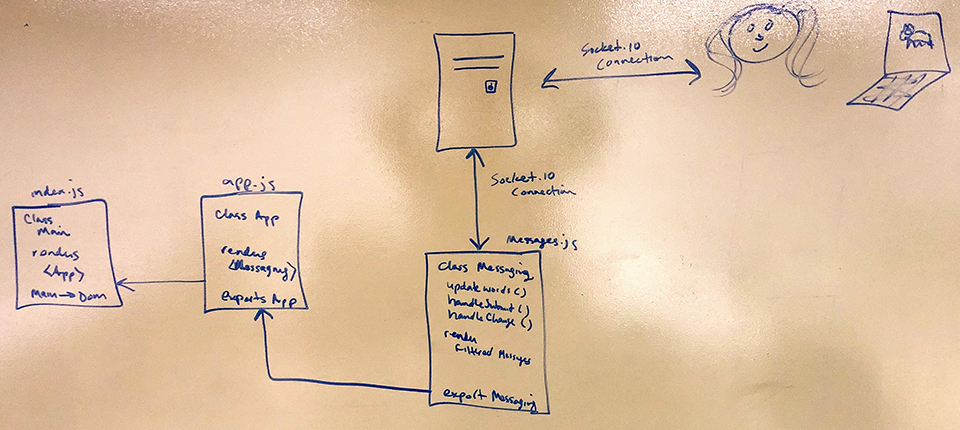 Socket.io
Connection
Socket.io
Connection
index.js
Class
Main
renders
<App>
Main → Dom
app.js
Class App
renders
<Messaging>
exports App
Messages.js
Class Messaging
updateWords()
handleSubmit()
handleChange()
render
Filtered Messages
export Messaging